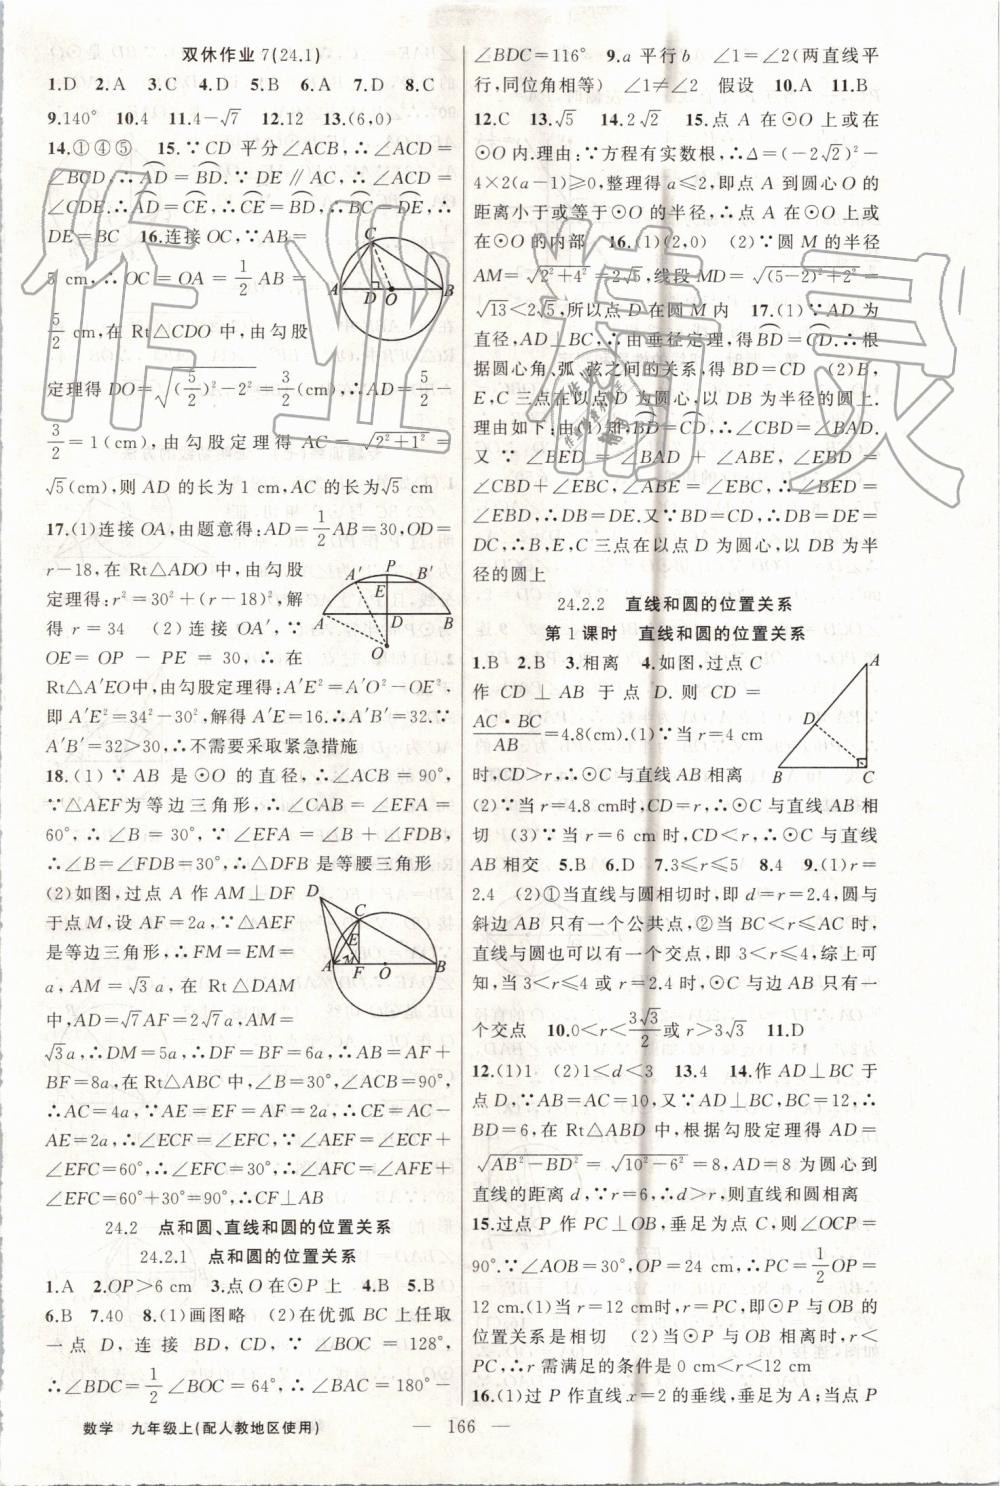 双休作业 7(24.1)
1.D 2.A 3.C 4.D 5.B 6.A 7.D 8.C
9.140° 10.4 11.4-√7 12.12 13.(6,0)
14.①④⑤ 15.∵CD 平分∠ACB,∴∠ACD=
∠BCD,∴AD=BD.∵DE∥AC,∴∠ACD=
∠CDE.∴AD=CE,∴CE=BD,∴BC=DE,∴
DE=BC 16.连接 OC,∵AB=
5 cm,∴OC=OA=1/2 AB=
5/2 cm,在 Rt△CDO 中,由勾股
定理得 DO=√((5/2)²-2²)=3/2(cm),∴AD=5/2-
3/2=1(cm),由勾股定理得 AC=√(2²+1²)=
√5(cm),则 AD 的长为 1 cm,AC 的长为√5 cm
17.(1)连接 OA,由题意得:AD=1/2AB=30,OD=
r-18,在 Rt△ADO 中,由勾股
定理得:r²=30²+(r-18)²,解
得 r=34 (2)连接 OA′,∵
OE=OP-PE=30,∴在
Rt△A′EO中,由勾股定理得:A′E²=A′O²-OE²,
即 A′E²=34²-30²,解得 A′E=16.∴A′B′=32.∵
A′B′=32>30,∴不需要采取紧急措施
18.(1)∵AB 是⊙O 的直径,∴∠ACB=90°,
∵△AEF为等边三角形,∴∠CAB=∠EFA=
60°,∴∠B=30°,∵∠EFA=∠B+∠FDB,
∴∠B=∠FDB=30°,∴△DFB 是等腰三角形
(2)如图,过点 A 作 AM⊥DF
于点M,设 AF=2a,∵△AEF
是等边三角形,∴FM=EM=
a,AM=√3a,在 Rt△DAM
中,AD=√7AF=2√7a,AM=
√3a,∴DM=5a,∴DF=BF=6a,∴AB=AF+
BF=8a,在 Rt△ABC 中,∠B=30°,∠ACB=90°,
∴AC=4a,∵AE=EF=AF=2a,∴CE=AC-
AE=2a,∴∠ECF=∠EFC,∵∠AEF=∠ECF+
∠EFC=60°,∴∠EFC=30°,∴∠AFC=∠AFE+
∠EFC=60°+30°=90°,∴CF⊥AB
24.2 点和圆、直线和圆的位置关系
24.2.1 点和圆的位置关系
1.A 2.OP>6 cm 3.点 O 在⊙P 上 4.B 5.B
6.B 7.40 8.(1)画图略 (2)在优弧 BC 上任取
一点 D,连接 BD,CD,∵∠BOC=128°,
∴∠BDC=1/2∠BOC=64°,∴∠BAC=180°-
∠BDC=116° 9.a 平行 b ∠1=∠2(两直线平
行,同位角相等) ∠1≠∠2 假设 10.A 11.B
12.C 13.√5 14.2√2 15.点 A 在⊙O 上或在
⊙O 内.理由:∵方程有实数根,∴Δ=(-2√2)²-
4×2(a-1)≥0,整理得 a≤2,即点 A 到圆心 O 的
距离小于或等于⊙O 的半径,∴点 A 在⊙O 上或
在⊙O 的内部 16.(1)(2,0) (2)∵圆 M 的半径
AM=√(2²+4²)=2√5,线段 MD=√((5-2)²+2²)=
√13<2√5,所以点 D 在圆 M 内 17.(1)∵AD 为
直径,AD⊥BC,∴由垂径定理,得BD=CD.∴根
据圆心角、弧、弦之间的关系,得 BD=CD (2)B,
E,C 三点在以点 D 为圆心,以 DB 为半径的圆上.
理由如下:由(1)知BD=CD,∴∠CBD=∠BAD.
又∵∠BED=∠BAD+∠ABE,∠EBD=
∠CBD+∠EBC,∠ABE=∠EBC,∴∠BED=
∠EBD,∴DB=DE.又∵BD=CD,∴DB=DE=
DC,∴B,E,C 三点在以点 D 为圆心,以 DB 为半
径的圆上
24.2.2 直线和圆的位置关系
第 1 课时 直线和圆的位置关系
1.B 2.B 3.相离 4.如图,过点 C
作 CD⊥AB 于点 D.则 CD=
AC·BC/AB=4.8(cm).(1)∵当 r=4 cm
时,CD>r,∴⊙C 与直线AB 相离
(2)∵当 r=4.8 cm时,CD=r,∴⊙C 与直线 AB 相
切 (3)∵当 r=6 cm 时,CD<r,∴⊙C 与直线
AB 相交 5.B 6.D 7.3≤r≤5 8.4 9.(1)r=
2.4 (2)①当直线与圆相切时,即 d=r=2.4,圆与
斜边 AB 只有一个公共点,②当 BC<r≤AC 时,
直线与圆只有一个交点,即 3<r≤4,综上可
知,当 3<r≤4 或 r=2.4 时,直线与圆只有一
个交点 10.0<r<3√3/2或 r>3√3 11.D
12.(1)1 (2)1<d<3 13.4 14.作 AD⊥BC 于
点 D,∵AB=AC=10,又∵AD⊥BC,BC=12,∴
BD=6,在 Rt△ABD 中,根据勾股定理得 AD=
√(AB²-BD²)=√(10²-6²)=8,AD=8 为圆心到
直线的距离 d,∵r=6,∴d>r,则直线和圆相离
15.过点 P 作 PC⊥OB,垂足为点 C,则∠OCP=
90°.∵∠AOB=30°,OP=24 cm,∴PC=1/2OP=
12 cm.(1)当 r=12 cm时,r=PC,即⊙P 与 OB 的
位置关系是相切 (2)当⊙P 与 OB 相离时,r<
PC,∴r 需满足的条件是 0 cm<r<12 cm
16.(1)过 P 作直线 x=2 的垂线,垂足为 A;当点 P
数学 九年级上(配人教地区使用)
— 166 —
作业精灵